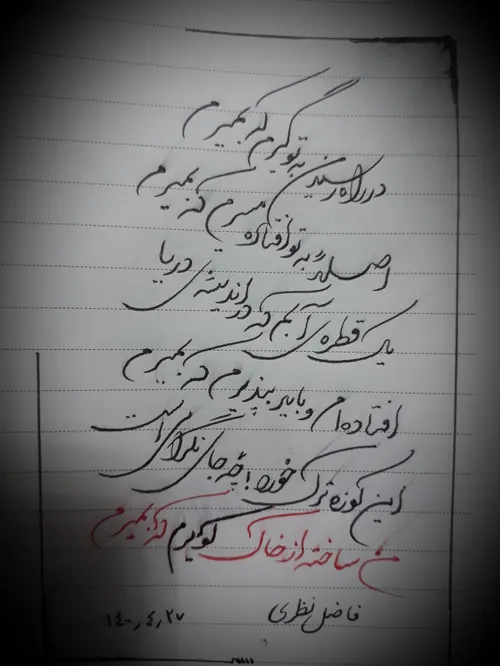 در راه رسیدن به تو گیرم که بمیرم
اصلا به تو افتاده مسیرم که بمیرم
یک قطره‌ی آبم که در اندیشه‌ی دریا
افتاده‌ام و باید بپذیرم که بمیرم
این کوزه ترک خورد! چه جای نگرانی است
من ساخته از خاک کویرم که بمیرم
فاضل نظری
۱۴۰۰٫۴٫۲۷